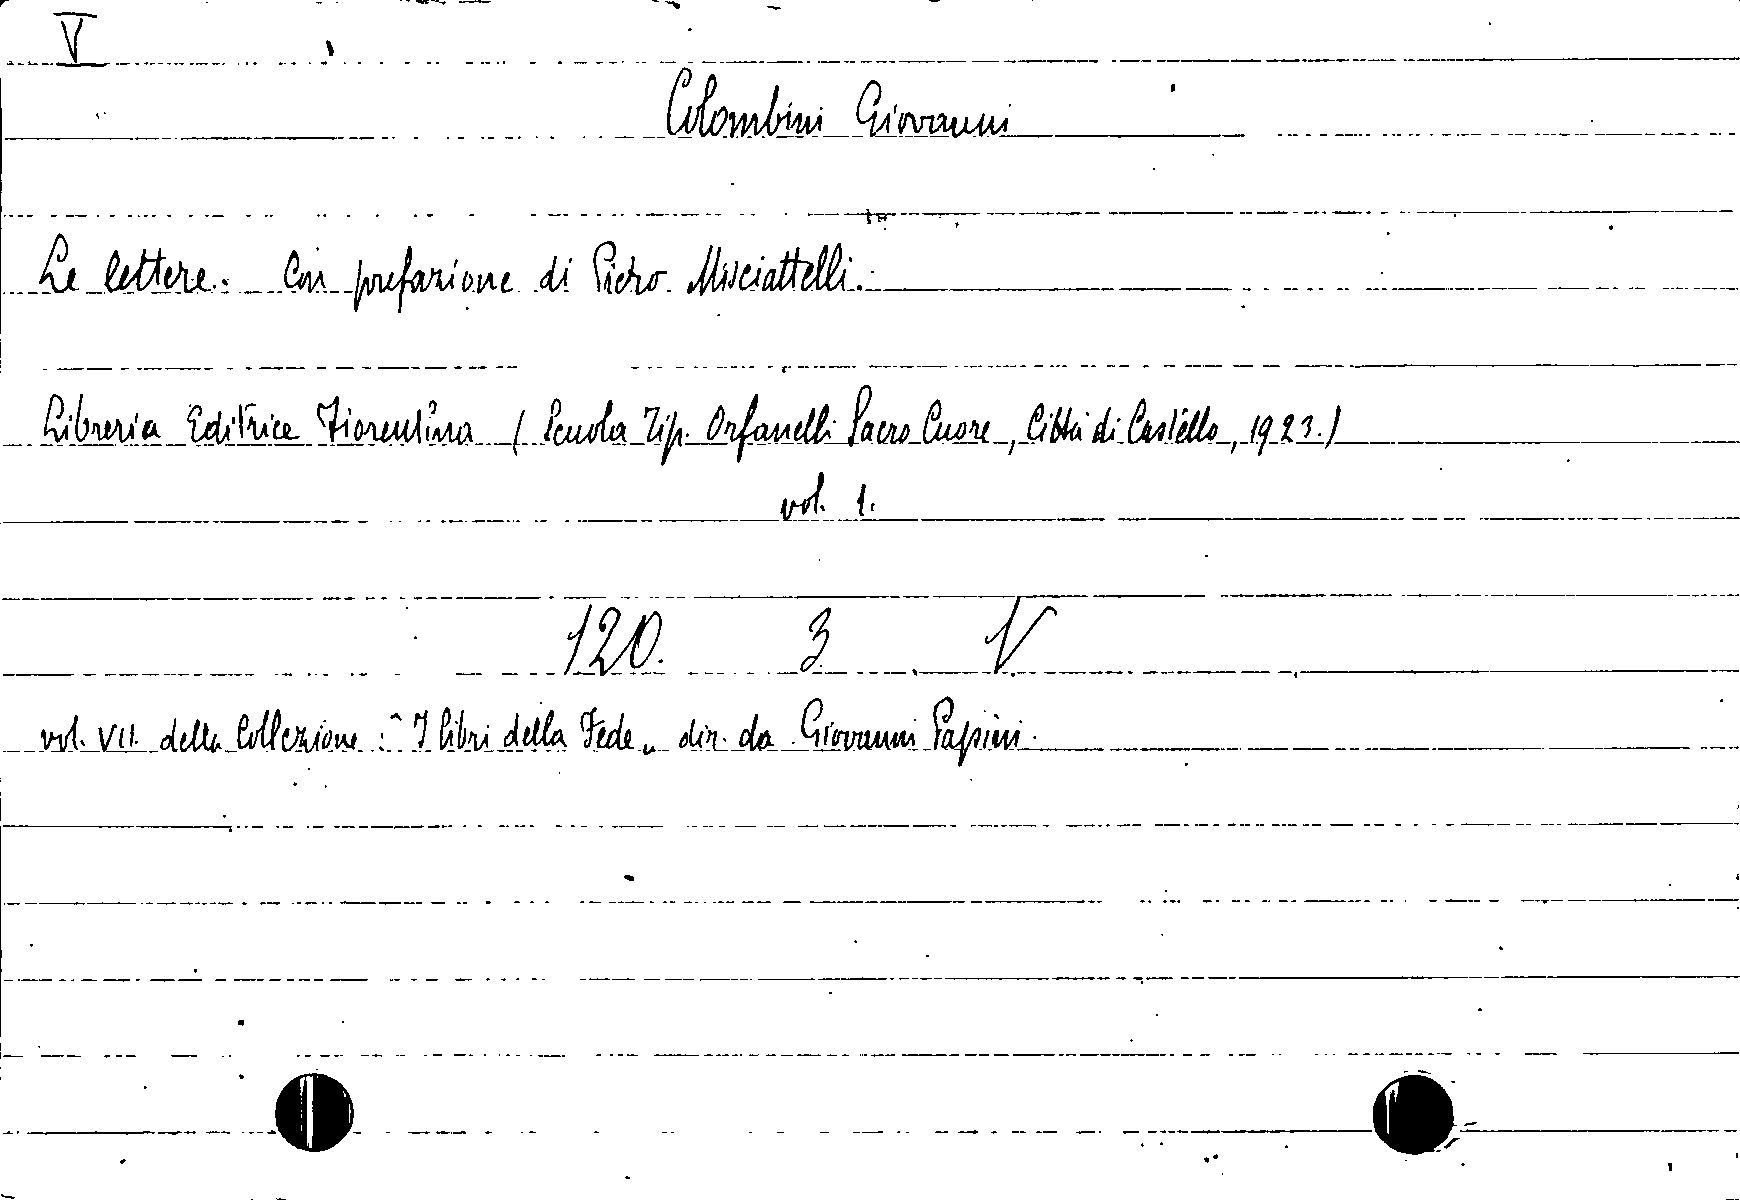 V
Colombini Giovanni
Le lettere. Con prefazione di Piero Misciattelli.
Libreria Editrice Fiorentina (Scuola Tip. Orfanelli Sacro Cuore, Città di Castello, 1923.)
vol. 1.
120. 3 V
vol. VII. della Collezione: "I libri della Fede„ dir. da Giovanni Papini.